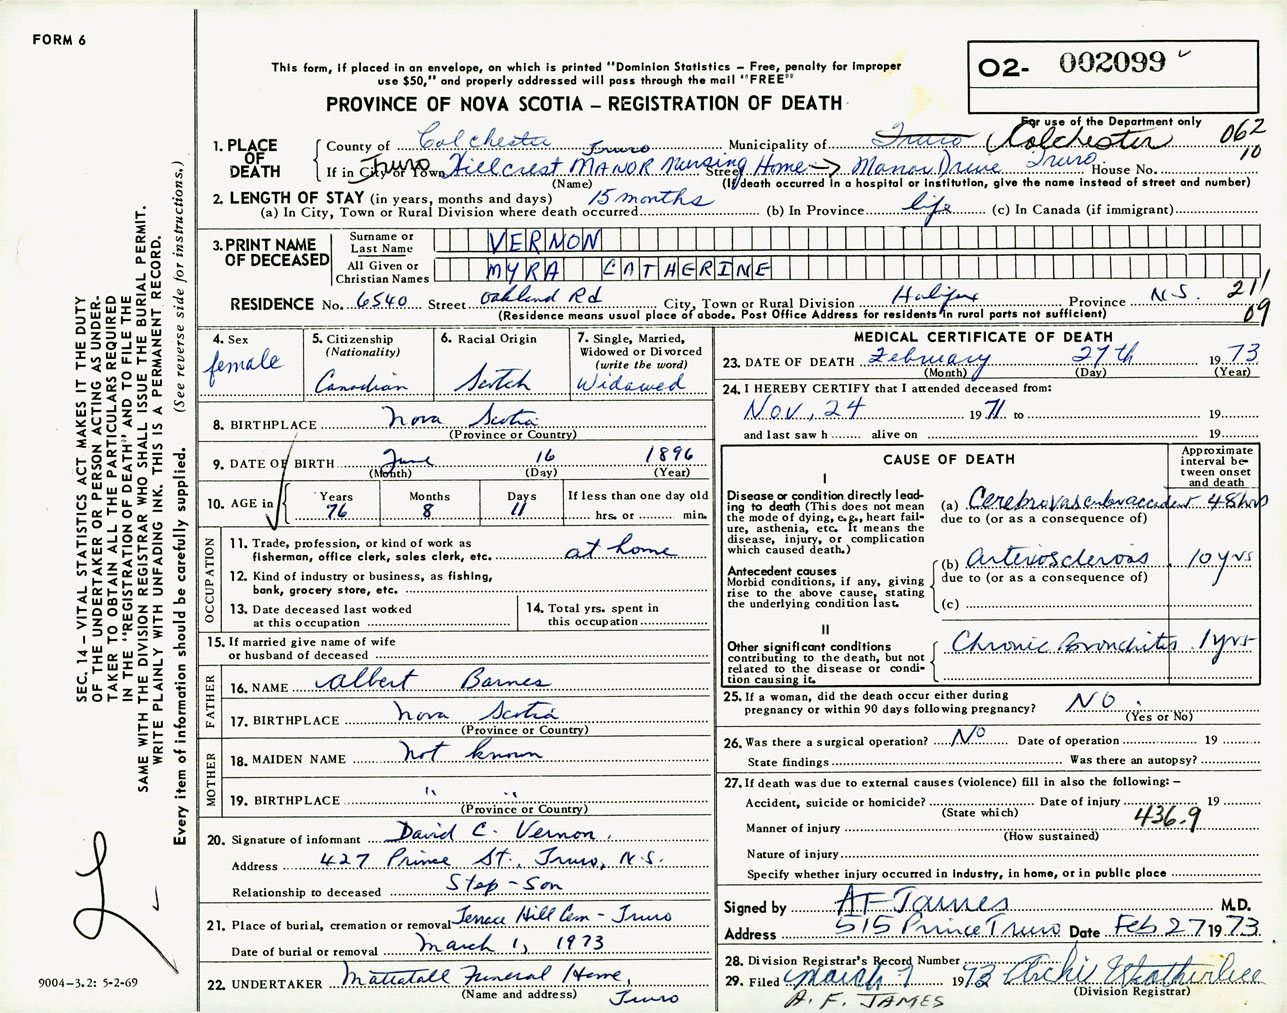 FORM 6
This form, if placed in an envelope, on which is printed "Dominion Statistics – Free, penalty for improper
use $50," and properly addressed will pass through the mail "FREE"
PROVINCE OF NOVA SCOTIA – REGISTRATION OF DEATH
O2- 002099
For use of the Department only
062
10
1. PLACE OF DEATH
County of Colchester Municipality of Truro Colchester
Truro
If in City or Town Truro Hillcrest MANOR Nursing Home → Manor Drive Truro Street House No.
(Name) (If death occurred in a hospital or institution, give the name instead of street and number)
2. LENGTH OF STAY (in years, months and days)
(a) In City, Town or Rural Division where death occurred 15 months (b) In Province life (c) In Canada (if immigrant)
3. PRINT NAME OF DECEASED
Surname or Last Name VERNON
All Given or Christian Names MYRA CATHERINE
RESIDENCE No. 6540 Street Oakland Rd City, Town or Rural Division Halifax Province N.S. 211
(Residence means usual place of abode. Post Office Address for residents in rural parts not sufficient) 09
4. Sex
female
5. Citizenship
(Nationality)
Canadian
6. Racial Origin
Scotch
7. Single, Married,
Widowed or Divorced
(write the word)
Widowed
8. BIRTHPLACE Nova Scotia
(Province or Country)
9. DATE OF BIRTH June 16 1896
(Month) (Day) (Year)
10. AGE in
Years 76
Months 8
Days 11
If less than one day old
hrs. or min.
OCCUPATION
11. Trade, profession, or kind of work as
fisherman, office clerk, sales clerk, etc. at home
12. Kind of industry or business, as fishing,
bank, grocery store, etc.
13. Date deceased last worked
at this occupation
14. Total yrs. spent in
this occupation
15. If married give name of wife
or husband of deceased
FATHER
16. NAME Albert Barnes
17. BIRTHPLACE Nova Scotia
(Province or Country)
MOTHER
18. MAIDEN NAME not known
19. BIRTHPLACE " "
(Province or Country)
20. Signature of informant David C. Vernon
Address 427 Prince St., Truro, N.S.
Relationship to deceased Step-Son
21. Place of burial, cremation or removal Terrace Hill Cem - Truro
Date of burial or removal March 1, 1973
22. UNDERTAKER Mattatall Funeral Home,
(Name and address) Truro
MEDICAL CERTIFICATE OF DEATH
23. DATE OF DEATH February 27th 1973
(Month) (Day) (Year)
24. I HEREBY CERTIFY that I attended deceased from:
Nov, 24 1971 to 19
and last saw h alive on 19
CAUSE OF DEATH
Approximate interval between onset and death
I
Disease or condition directly leading to death (This does not mean the mode of dying, e.g., heart failure, asthenia, etc. It means the disease, injury, or complication which caused death.)
(a) Cerebrovascular accident 48 hrs
due to (or as a consequence of)
Antecedent causes
Morbid conditions, if any, giving rise to the above cause, stating the underlying condition last.
(b) Arteriosclerosis 10 yrs
due to (or as a consequence of)
(c)
II
Other significant conditions
contributing to the death, but not related to the disease or condition causing it.
Chronic Bronchitis 1 yrs
25. If a woman, did the death occur either during
pregnancy or within 90 days following pregnancy? NO.
(Yes or No)
26. Was there a surgical operation? No Date of operation 19
State findings Was there an autopsy?
27. If death was due to external causes (violence) fill in also the following: –
Accident, suicide or homicide? Date of injury 19
(State which)
436.9
Manner of injury
(How sustained)
Nature of injury
Specify whether injury occurred in industry, in home, or in public place
Signed by AF James M.D.
Address 515 Prince Truro Date Feb 27 1973
28. Division Registrar's Record Number
29. Filed March 7 1973 Archi Weatherbee
(Division Registrar)
A. F. JAMES
SEC. 14 – VITAL STATISTICS ACT MAKES IT THE DUTY
OF THE UNDERTAKER OR PERSON ACTING AS UNDER-
TAKER TO OBTAIN ALL THE PARTICULARS REQUIRED
IN THE "REGISTRATION OF DEATH" AND TO FILE THE
SAME WITH THE DIVISION REGISTRAR WHO SHALL ISSUE THE BURIAL PERMIT.
WRITE PLAINLY WITH UNFADING INK. THIS IS A PERMANENT RECORD.
Every item of information should be carefully supplied. (See reverse side for instructions.)
9004-3.2: 5-2-69